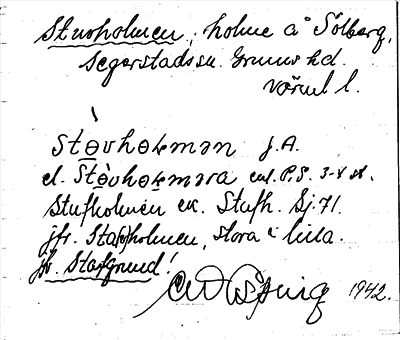 Stuvholmen, holme å Sölberg,
Segerstads sn. Grums hd.
Värml l.
stɵvhɵɫmən J.A.
el. Stɵvhɵɫmara enl. P.S. 3-4 st.
Stufholmen ek. Stufh. Sj.71.
jfr. Stafholmen, stora o lilla.
jfr. Stafgrund!
1942.